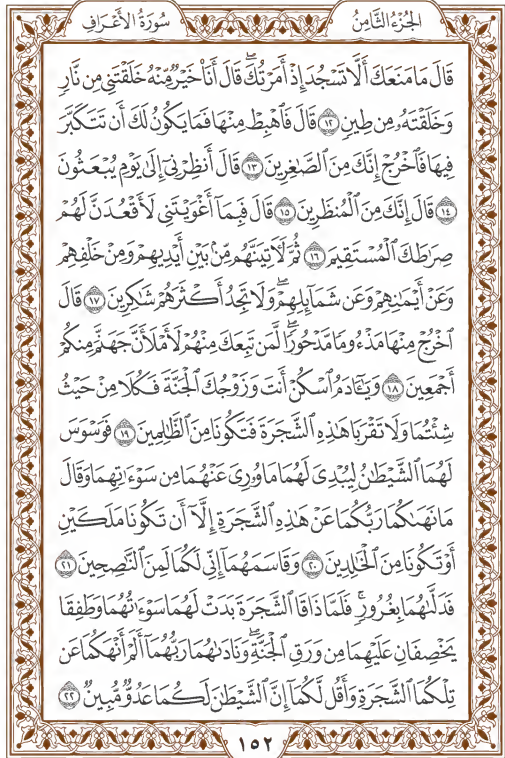 سُورَةُ الأَعْرَافِ
الجُزْءُ الثَّامِنُ
قَالَ مَا مَنَعَكَ أَلَّا تَسْجُدَ إِذْ أَمَرْتُكَۖ قَالَ أَنَا۠ خَيْرٌ مِّنْهُ خَلَقْتَنِى مِن نَّارٍ
وَخَلَقْتَهُۥ مِن طِينٍ ١٢ قَالَ فَٱهْبِطْ مِنْهَا فَمَا يَكُونُ لَكَ أَن تَتَكَبَّرَ
فِيهَا فَٱخْرُجْ إِنَّكَ مِنَ ٱلصَّٰغِرِينَ ١٣ قَالَ أَنظِرْنِىٓ إِلَىٰ يَوْمِ يُبْعَثُونَ
١٤ قَالَ إِنَّكَ مِنَ ٱلْمُنظَرِينَ ١٥ قَالَ فَبِمَآ أَغْوَيْتَنِى لَأَقْعُدَنَّ لَهُمْ
صِرَٰطَكَ ٱلْمُسْتَقِيمَ ١٦ ثُمَّ لَءَاتِيَنَّهُم مِّنۢ بَيْنِ أَيْدِيهِمْ وَمِنْ خَلْفِهِمْ
وَعَنْ أَيْمَٰنِهِمْ وَعَن شَمَآئِلِهِمْۖ وَلَا تَجِدُ أَكْثَرَهُمْ شَٰكِرِينَ ١٧ قَالَ
ٱخْرُجْ مِنْهَا مَذْءُومًا مَّدْحُورًاۖ لَّمَن تَبِعَكَ مِنْهُمْ لَأَمْلَأَنَّ جَهَنَّمَ مِنكُمْ
أَجْمَعِينَ ١٨ وَيَٰٓـَٔادَمُ ٱسْكُنْ أَنتَ وَزَوْجُكَ ٱلْجَنَّةَ فَكُلَا مِنْ حَيْثُ
شِئْتُمَا وَلَا تَقْرَبَا هَٰذِهِ ٱلشَّجَرَةَ فَتَكُونَا مِنَ ٱلظَّٰلِمِينَ ١٩ فَوَسْوَسَ
لَهُمَا ٱلشَّيْطَٰنُ لِيُبْدِىَ لَهُمَا مَا وُۥرِىَ عَنْهُمَا مِن سَوْءَٰتِهِمَا وَقَالَ
مَا نَهَىٰكُمَا رَبُّكُمَا عَنْ هَٰذِهِ ٱلشَّجَرَةِ إِلَّآ أَن تَكُونَا مَلَكَيْنِ
أَوْ تَكُونَا مِنَ ٱلْخَٰلِدِينَ ٢٠ وَقَاسَمَهُمَآ إِنِّى لَكُمَا لَمِنَ ٱلنَّٰصِحِينَ ٢١
فَدَلَّىٰهُمَا بِغُرُورٍۚ فَلَمَّا ذَاقَا ٱلشَّجَرَةَ بَدَتْ لَهُمَا سَوْءَٰتُهُمَا وَطَفِقَا
يَخْصِفَانِ عَلَيْهِمَا مِن وَرَقِ ٱلْجَنَّةِۖ وَنَادَىٰهُمَا رَبُّهُمَآ أَلَمْ أَنْهَكُمَا عَن
تِلْكُمَا ٱلشَّجَرَةِ وَأَقُل لَّكُمَآ إِنَّ ٱلشَّيْطَٰنَ لَكُمَا عَدُوٌّ مُّبِينٌ ٢٢
١٥٢